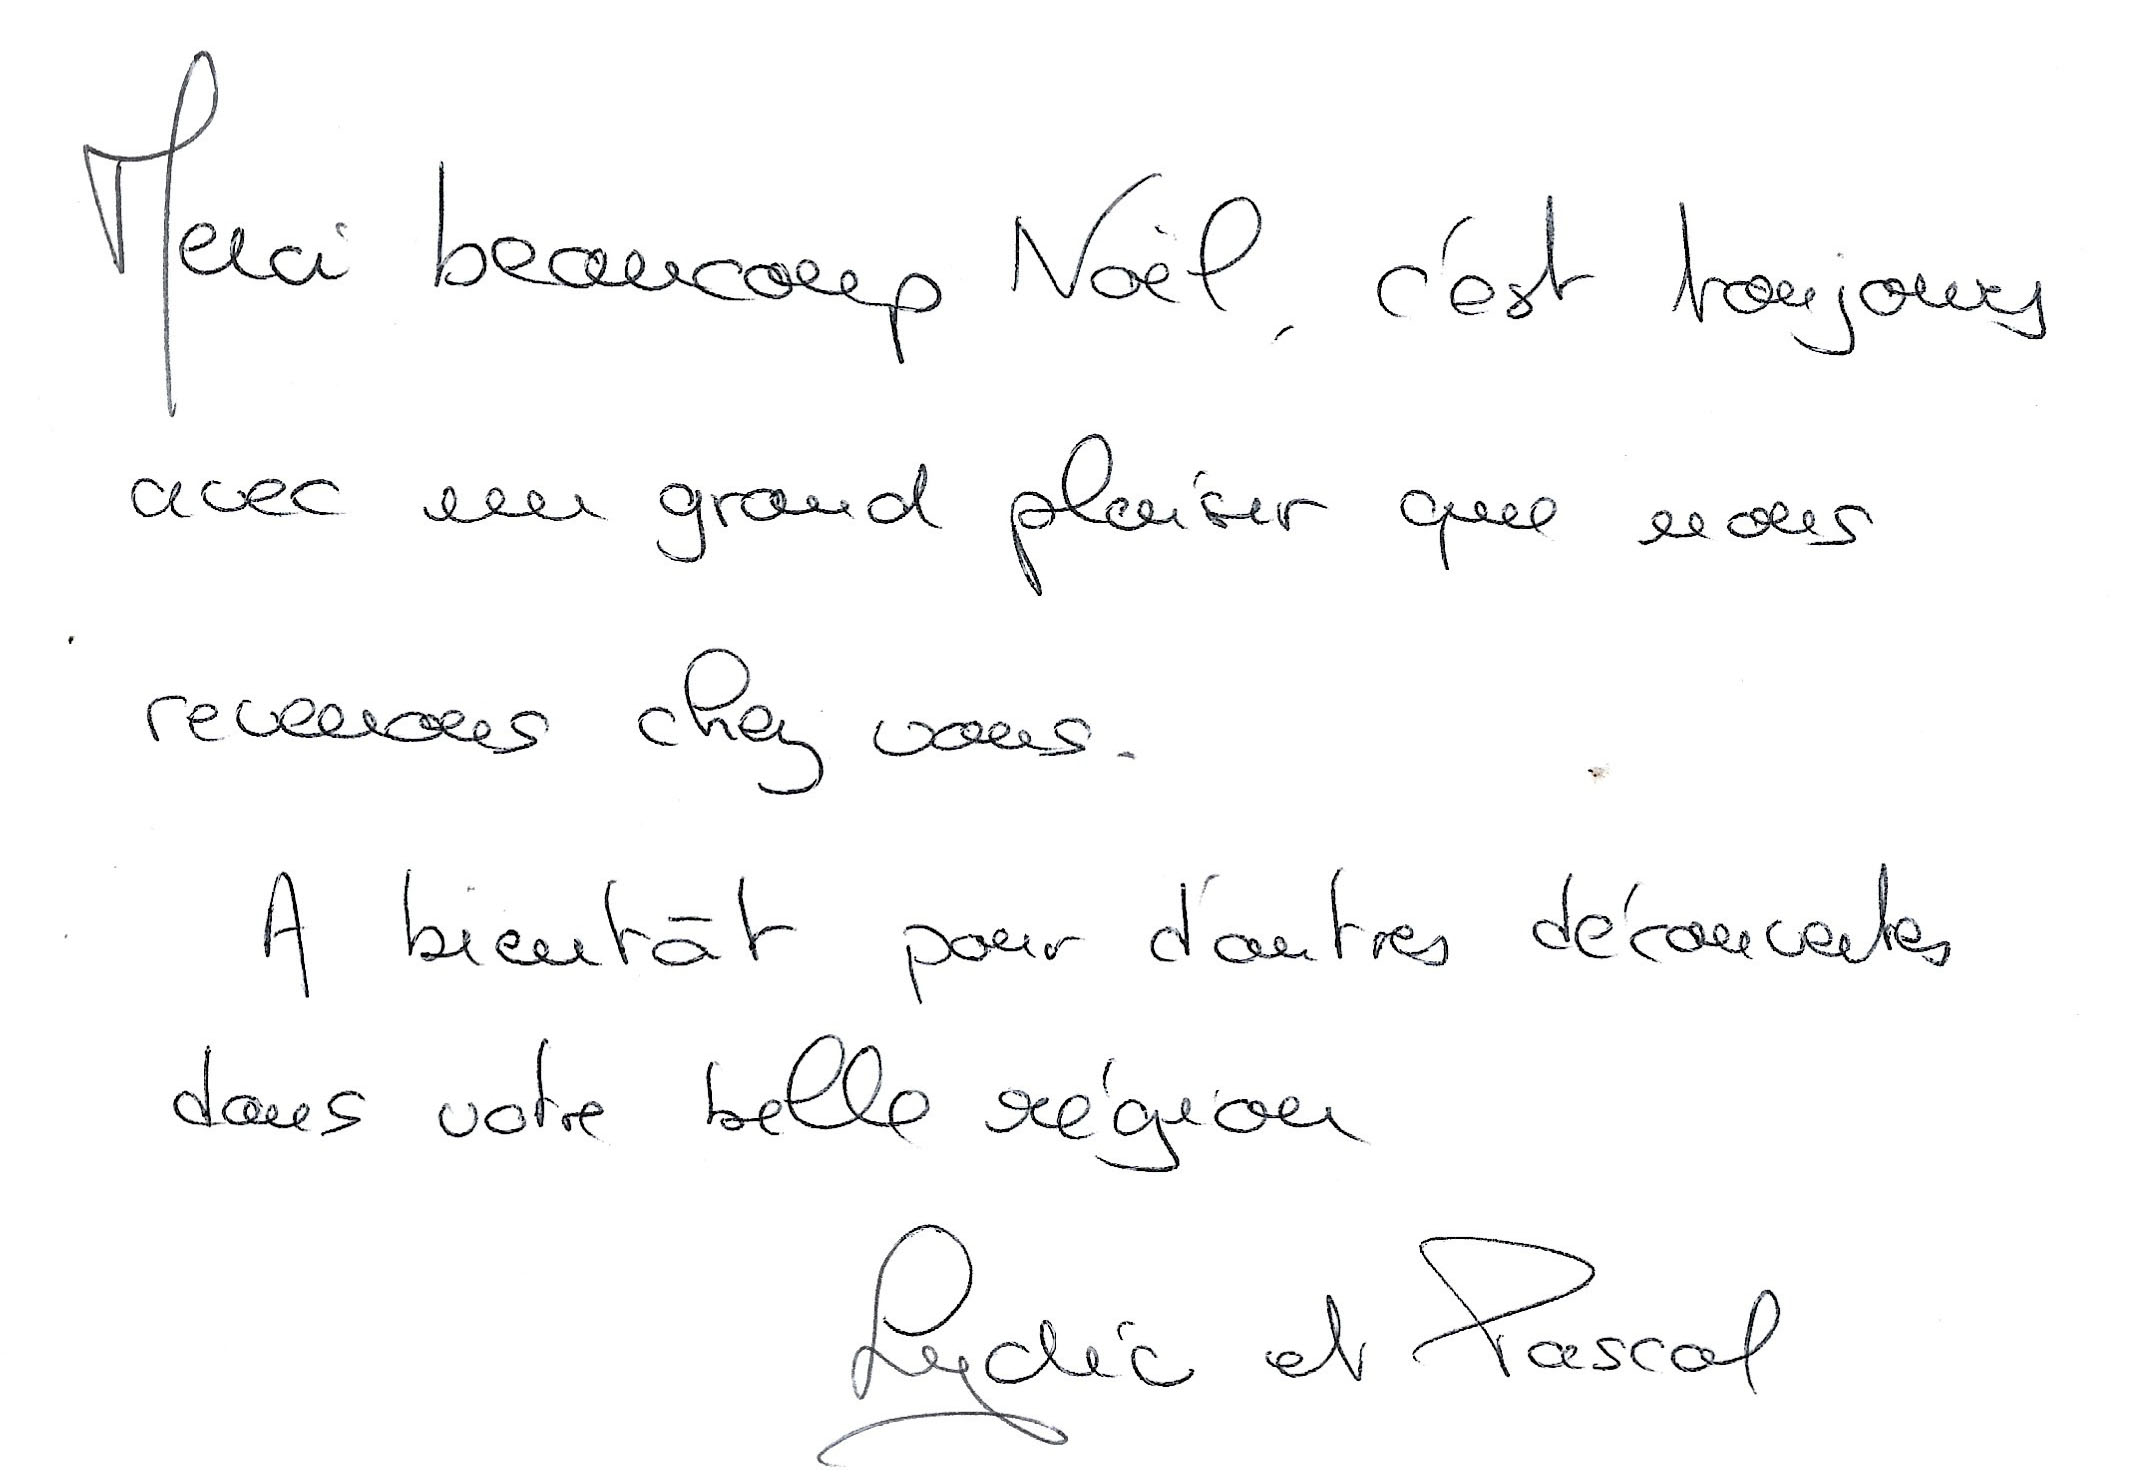 Merci beaucoup Noël, c'est toujours
avec un grand plaisir que nous
revenons chez vous.
A bientôt pour d'autres découvertes
dans votre belle région
Lydie et Pascal